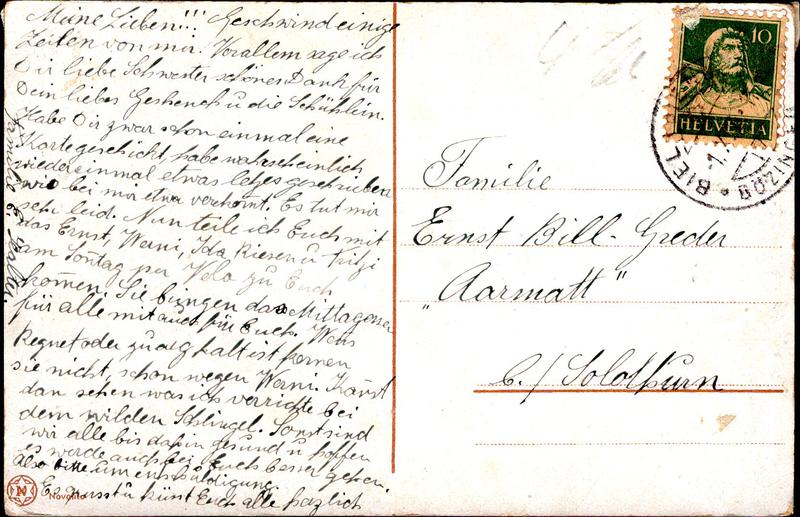 Meine Lieben!!! Geschwind einige
Zeilen von mir. Vor allem sage ich
Dir liebe Schwester schönen Dank für
Dein liebes Geshenck u die Schühlein.
Habe Dir zwar schon einmal eine
Karte geschickt, habe wahrscheinlich
wieder einmal etwas letzes geschrieben
wie bei mir etwa vorkomt. Es tut mir
sehr leid. Nun teile ich Euch mit
das Ernst, Werni, Ida Riesen u Fritzi
am Sontag per Velo zu Euch
kom̄en. Sie bringen das Mittagessen
für alle mit auch für Euch. Wens
Regnet oder zu arg kalt ist komen
sie nicht, schon wegen Werni. Kanst
dan sehen was ich verrichte bei
dem wilden Schlingel. Sonst sind
wir alle bis dahin gesund u hoffen
es werde auch bei Euch besser gehen.
Also bitte um enschuldigung.
Es grusst u küsst Euch alle herzlich
Familie E.
Familie
Ernst Bill-Greder
„Aarmatt"
b./Solothurn
10
HELVETIA
BIEL
BÖZINGEN
N
Novolito